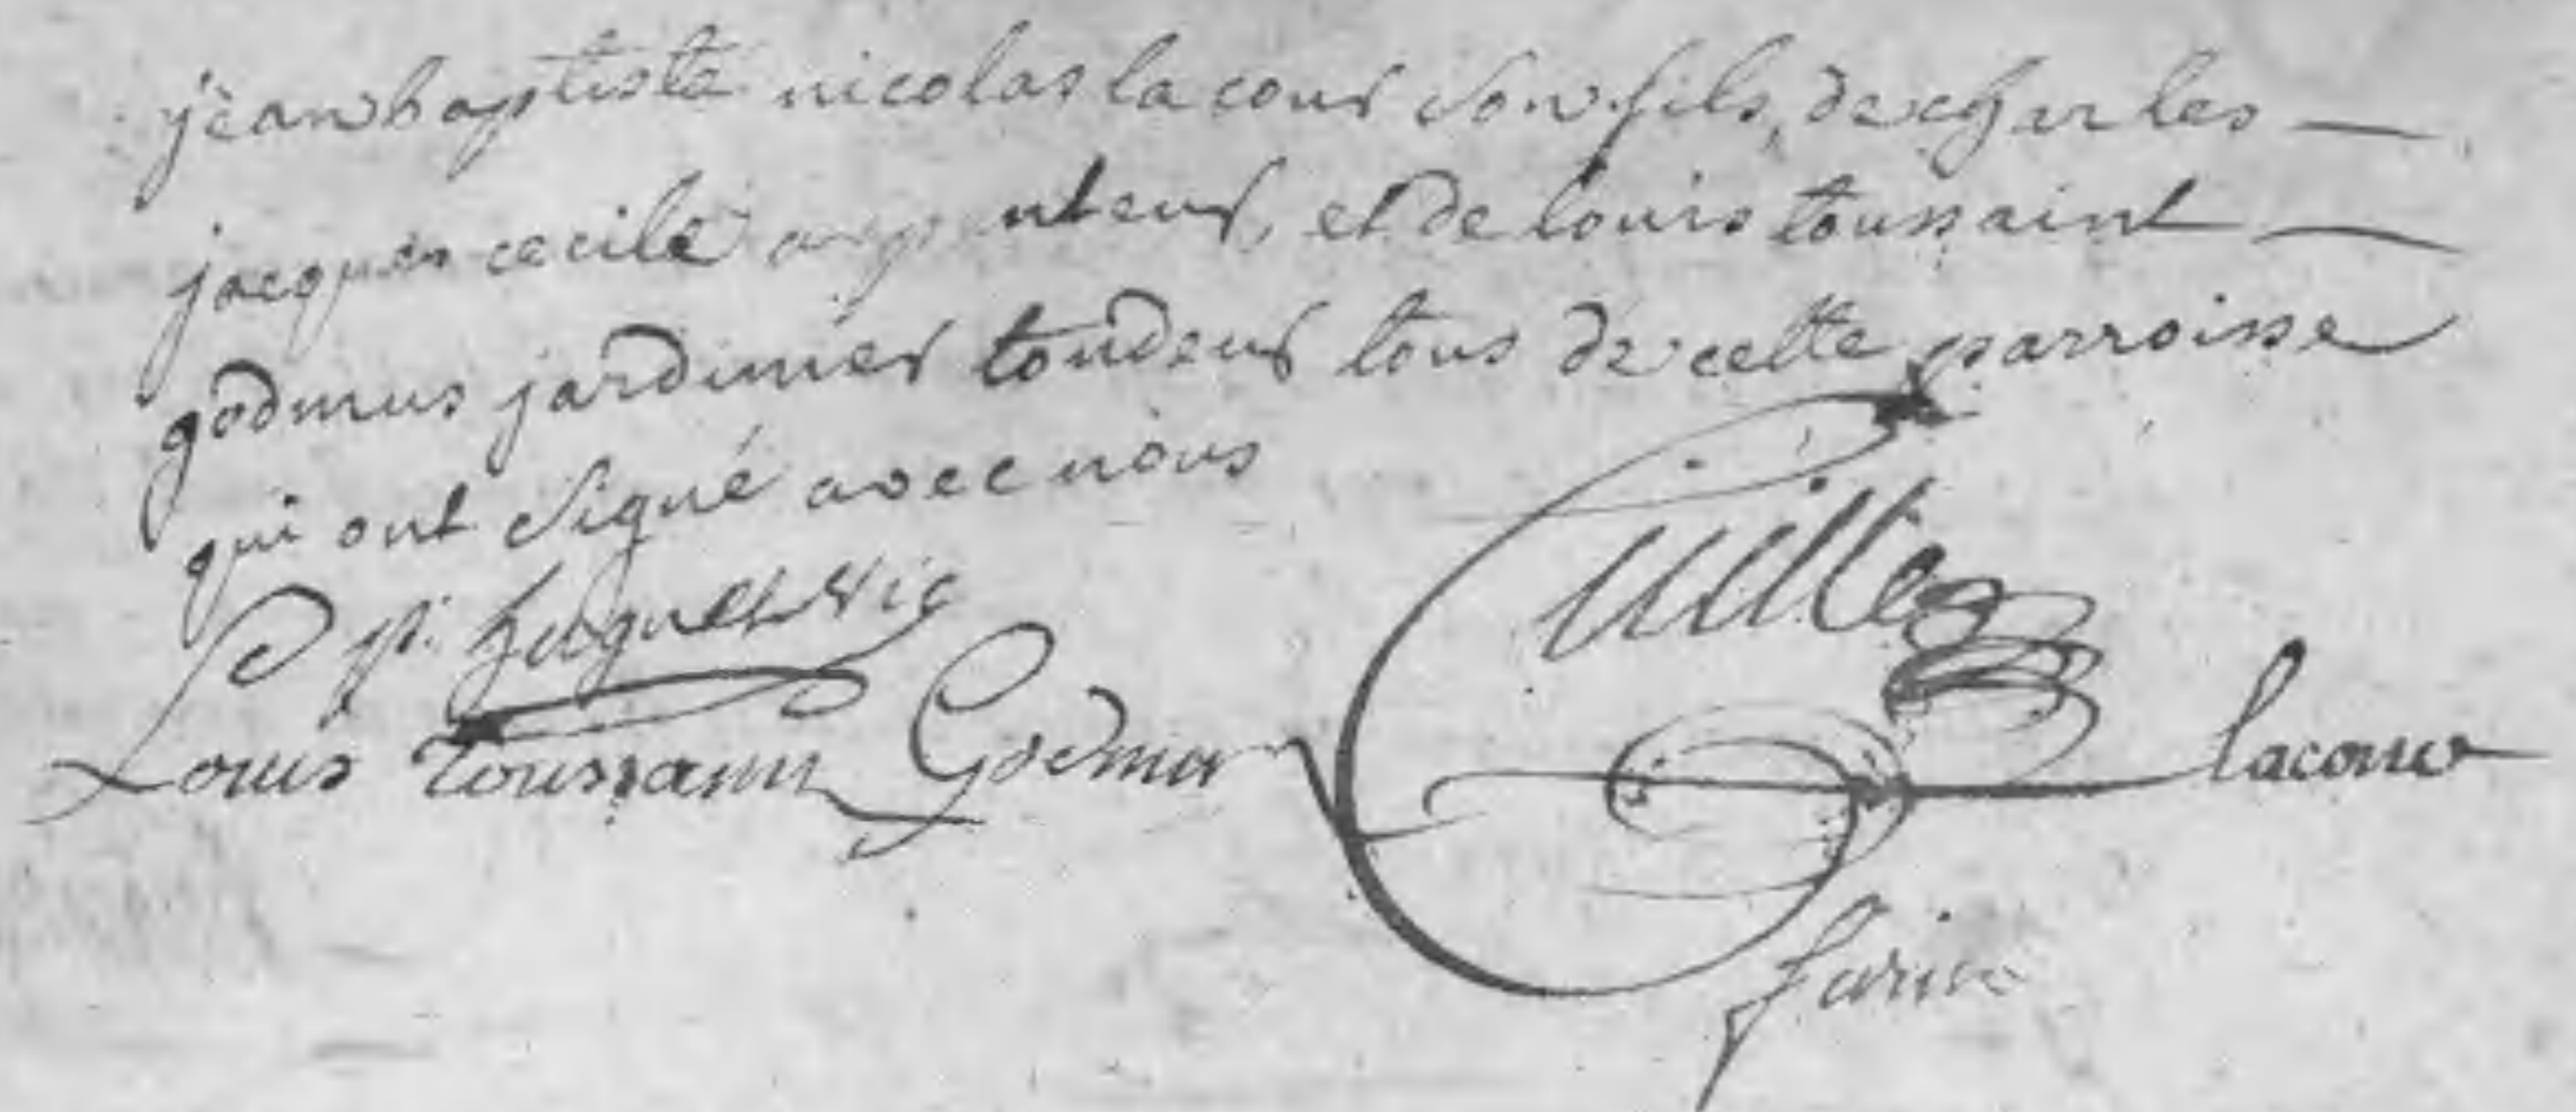 jean baptiste nicolas la cour son fils, de charles —
jacques cecile arpenteur, et de louis toussaint —
godmus jardinier tondeur tous de cette parroisse
qui ont signé avec nous
Louis Toussain Godmer
lacour
farin